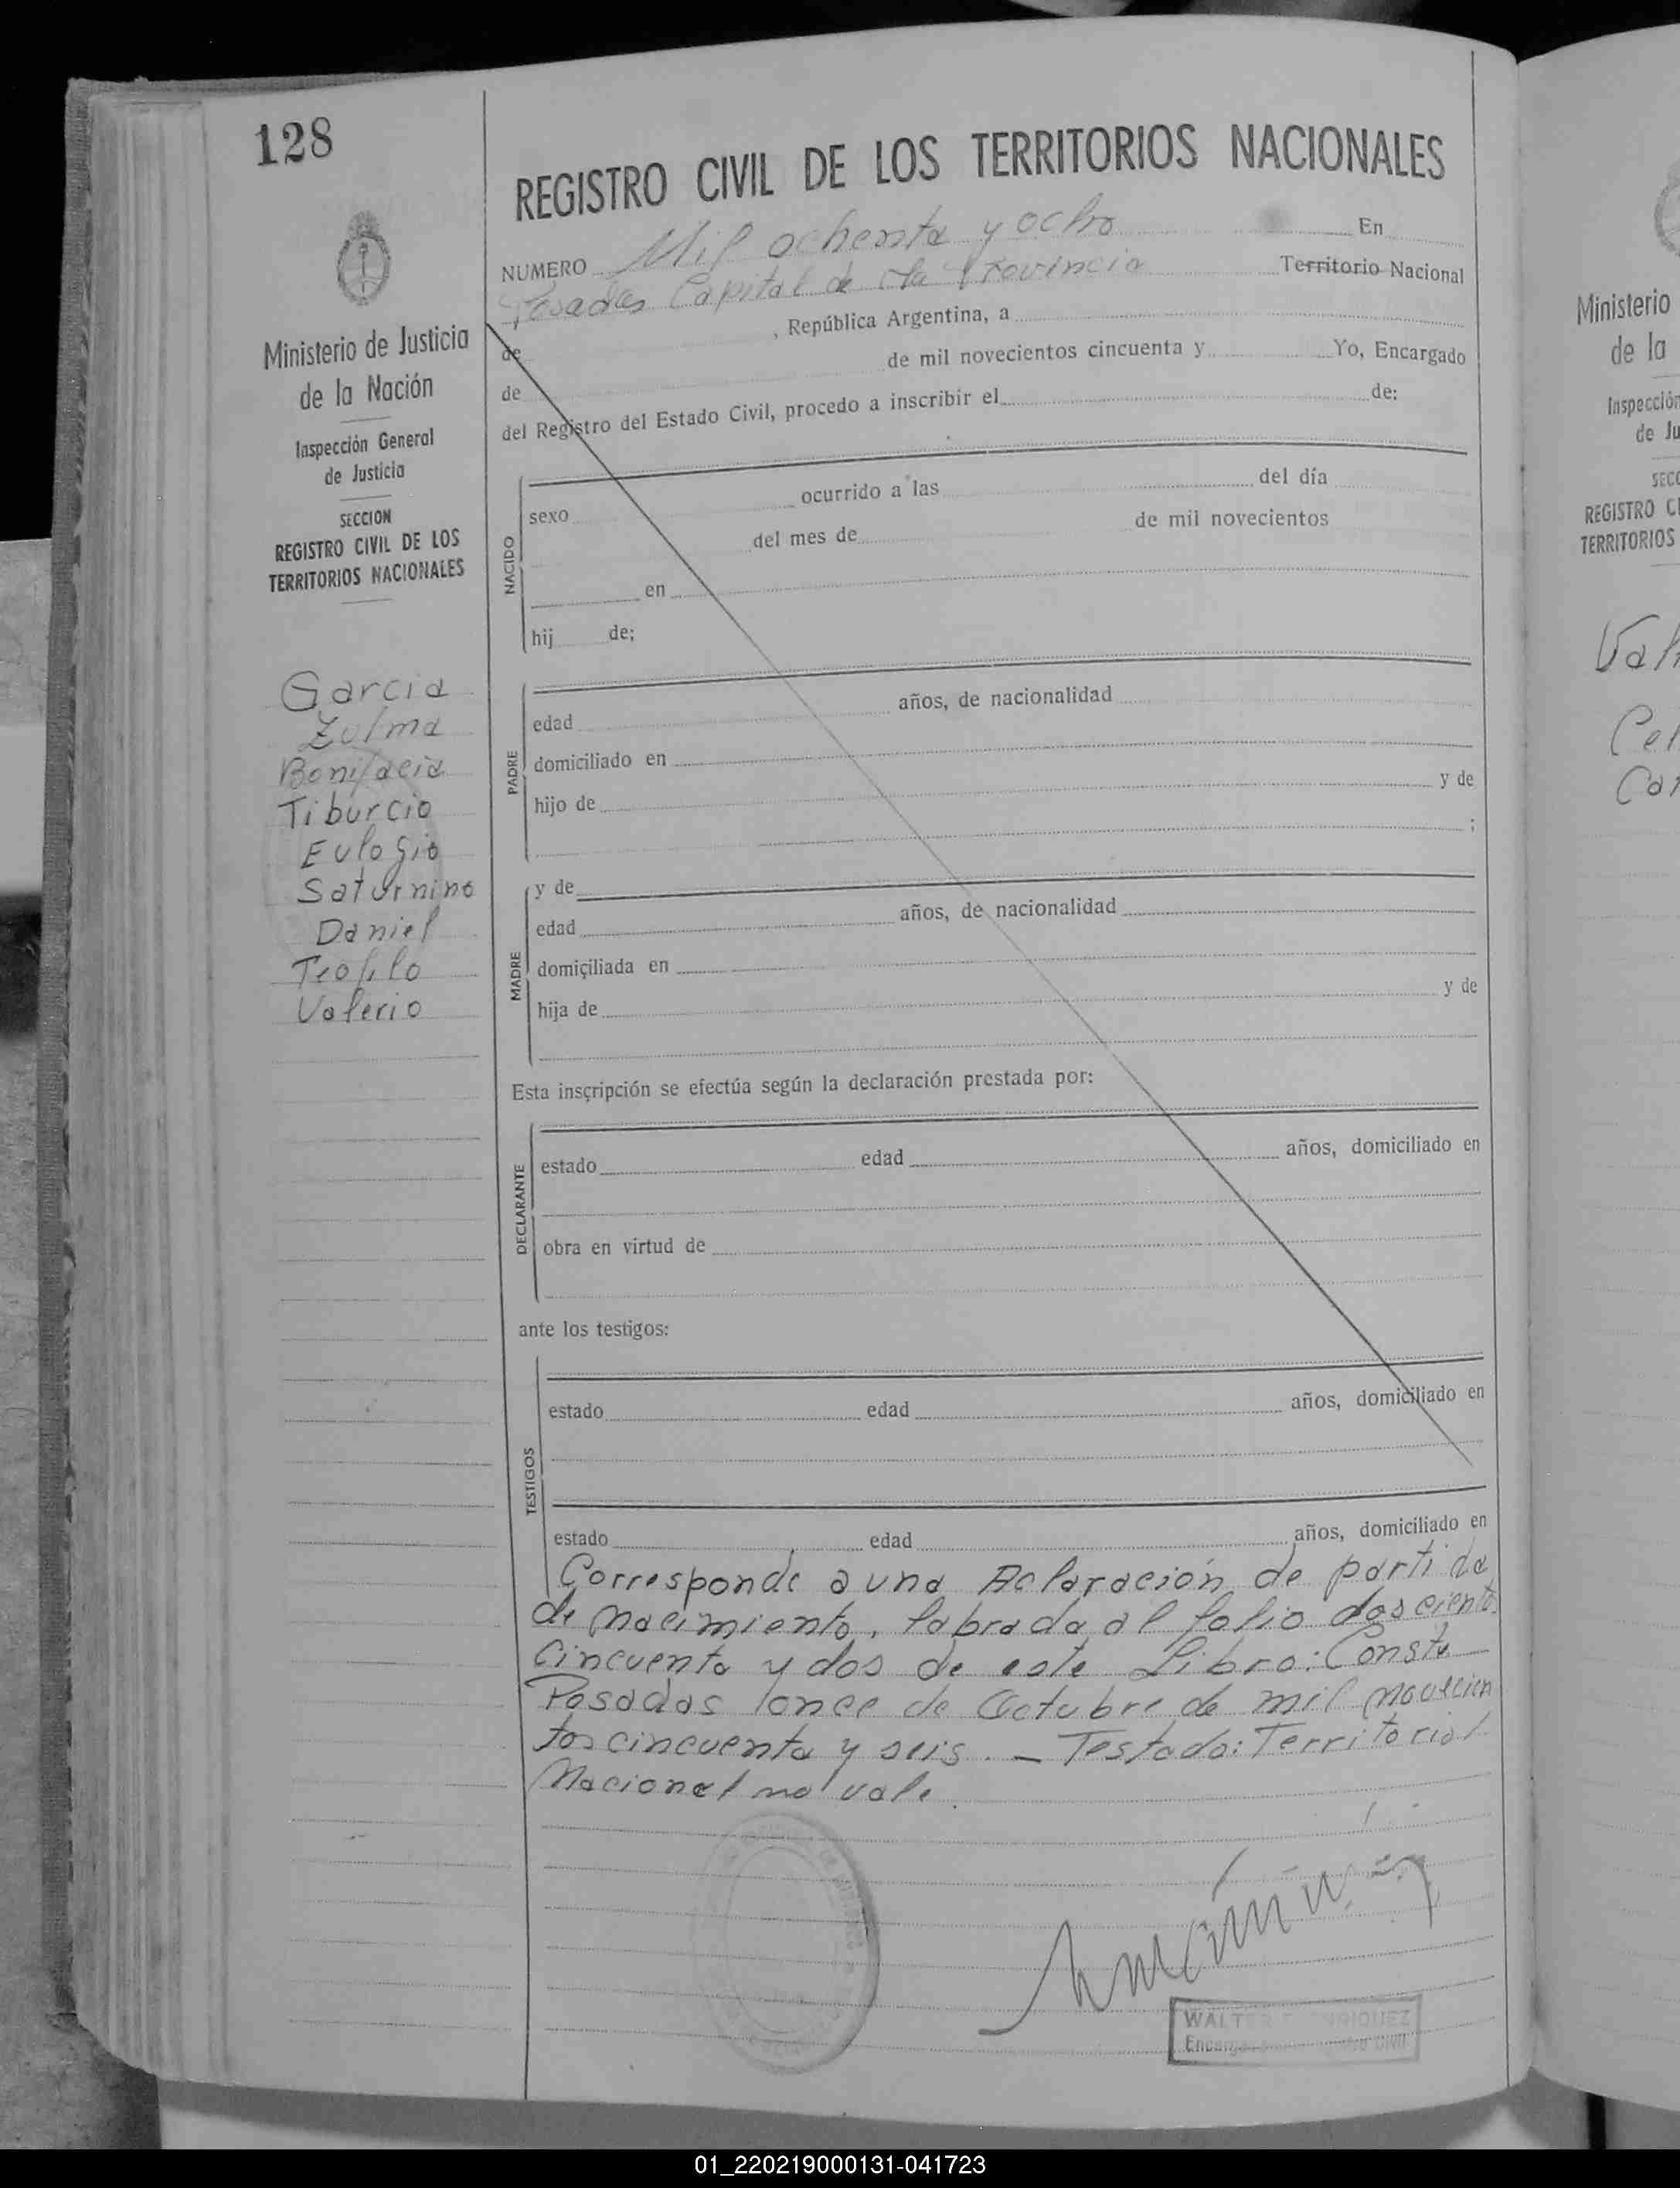 128
REGISTRO CIVIL DE LOS TERRITORIOS NACIONALES
NUMERO Mil ochenta y ocho En
Posadas Capital de la Provincia Territorio Nacional
de , República Argentina, a
de de mil novecientos cincuenta y Yo, Encargado
del Registro del Estado Civil, procedo a inscribir el de:
Ministerio de Justicia
de la Nación
Inspección General
de Justicia
SECCION
REGISTRO CIVIL DE LOS
TERRITORIOS NACIONALES
Garcia
Zulma
Bonifacia
Tiburcio
Eulogio
Saturnino
Daniel
Teofilo
Valerio
NACIDO
sexo ocurrido a las del día
del mes de de mil novecientos
en
hij de;
PADRE
edad años, de nacionalidad
domiciliado en
hijo de y de
;
MADRE
y de
edad años, de nacionalidad
domiciliada en
hija de y de
Esta inscripción se efectúa según la declaración prestada por:
DECLARANTE
estado edad años, domiciliado en
obra en virtud de
ante los testigos:
TESTIGOS
estado edad años, domiciliado en
estado edad años, domiciliado en
Corresponde a una Aclaración de partida
de nacimiento, labrada al folio doscientos
cincuenta y dos de este Libro: Conste
Posadas once de Octubre de mil novecien
tos cincuenta y seis. — Testado: Territorial
Nacional no vale.
WALTER
Ministerio
de la
Inspección
de Ju
SECC
REGISTRO CI
TERRITORIOS
Val
Cel
Car
01_220219000131-041723